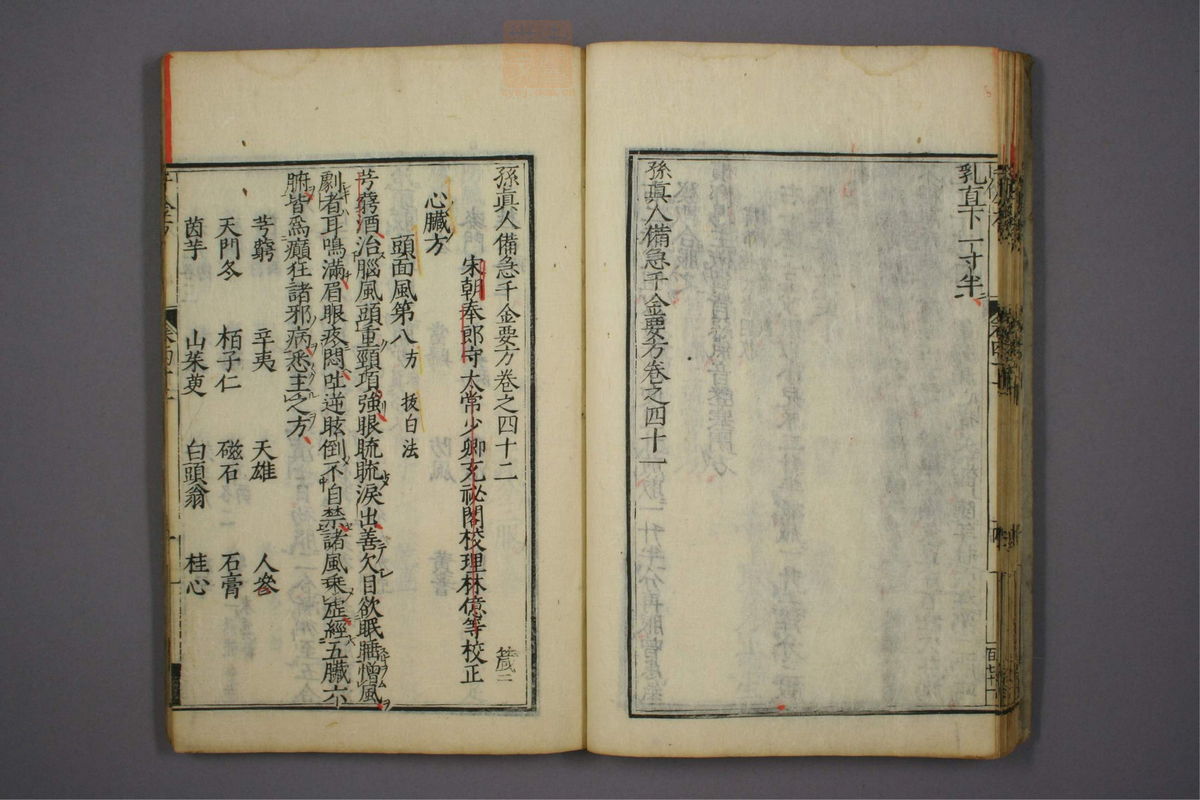 乳直下一寸半
孫真人備急千金要方卷之四十一
孫真人備急千金要方卷之四十二
宋朝奉郎守太常少卿充祕閣校理林億等校正
心臟方
頭面風第八 方 拔白法
芎藭酒治腦風頭重頸項強眼䀮䀮淚出善欠目欲眠睡憎風
劇者耳鳴滿眉眼疼悶吐逆眩倒不自禁諸風乘虛經五臟六
腑皆爲癲狂諸邪病悉主之方
芎藭 辛夷 天雄 人參
天門冬 栢子仁 磁石 石膏
茵芋 山茱萸 白頭翁 桂心